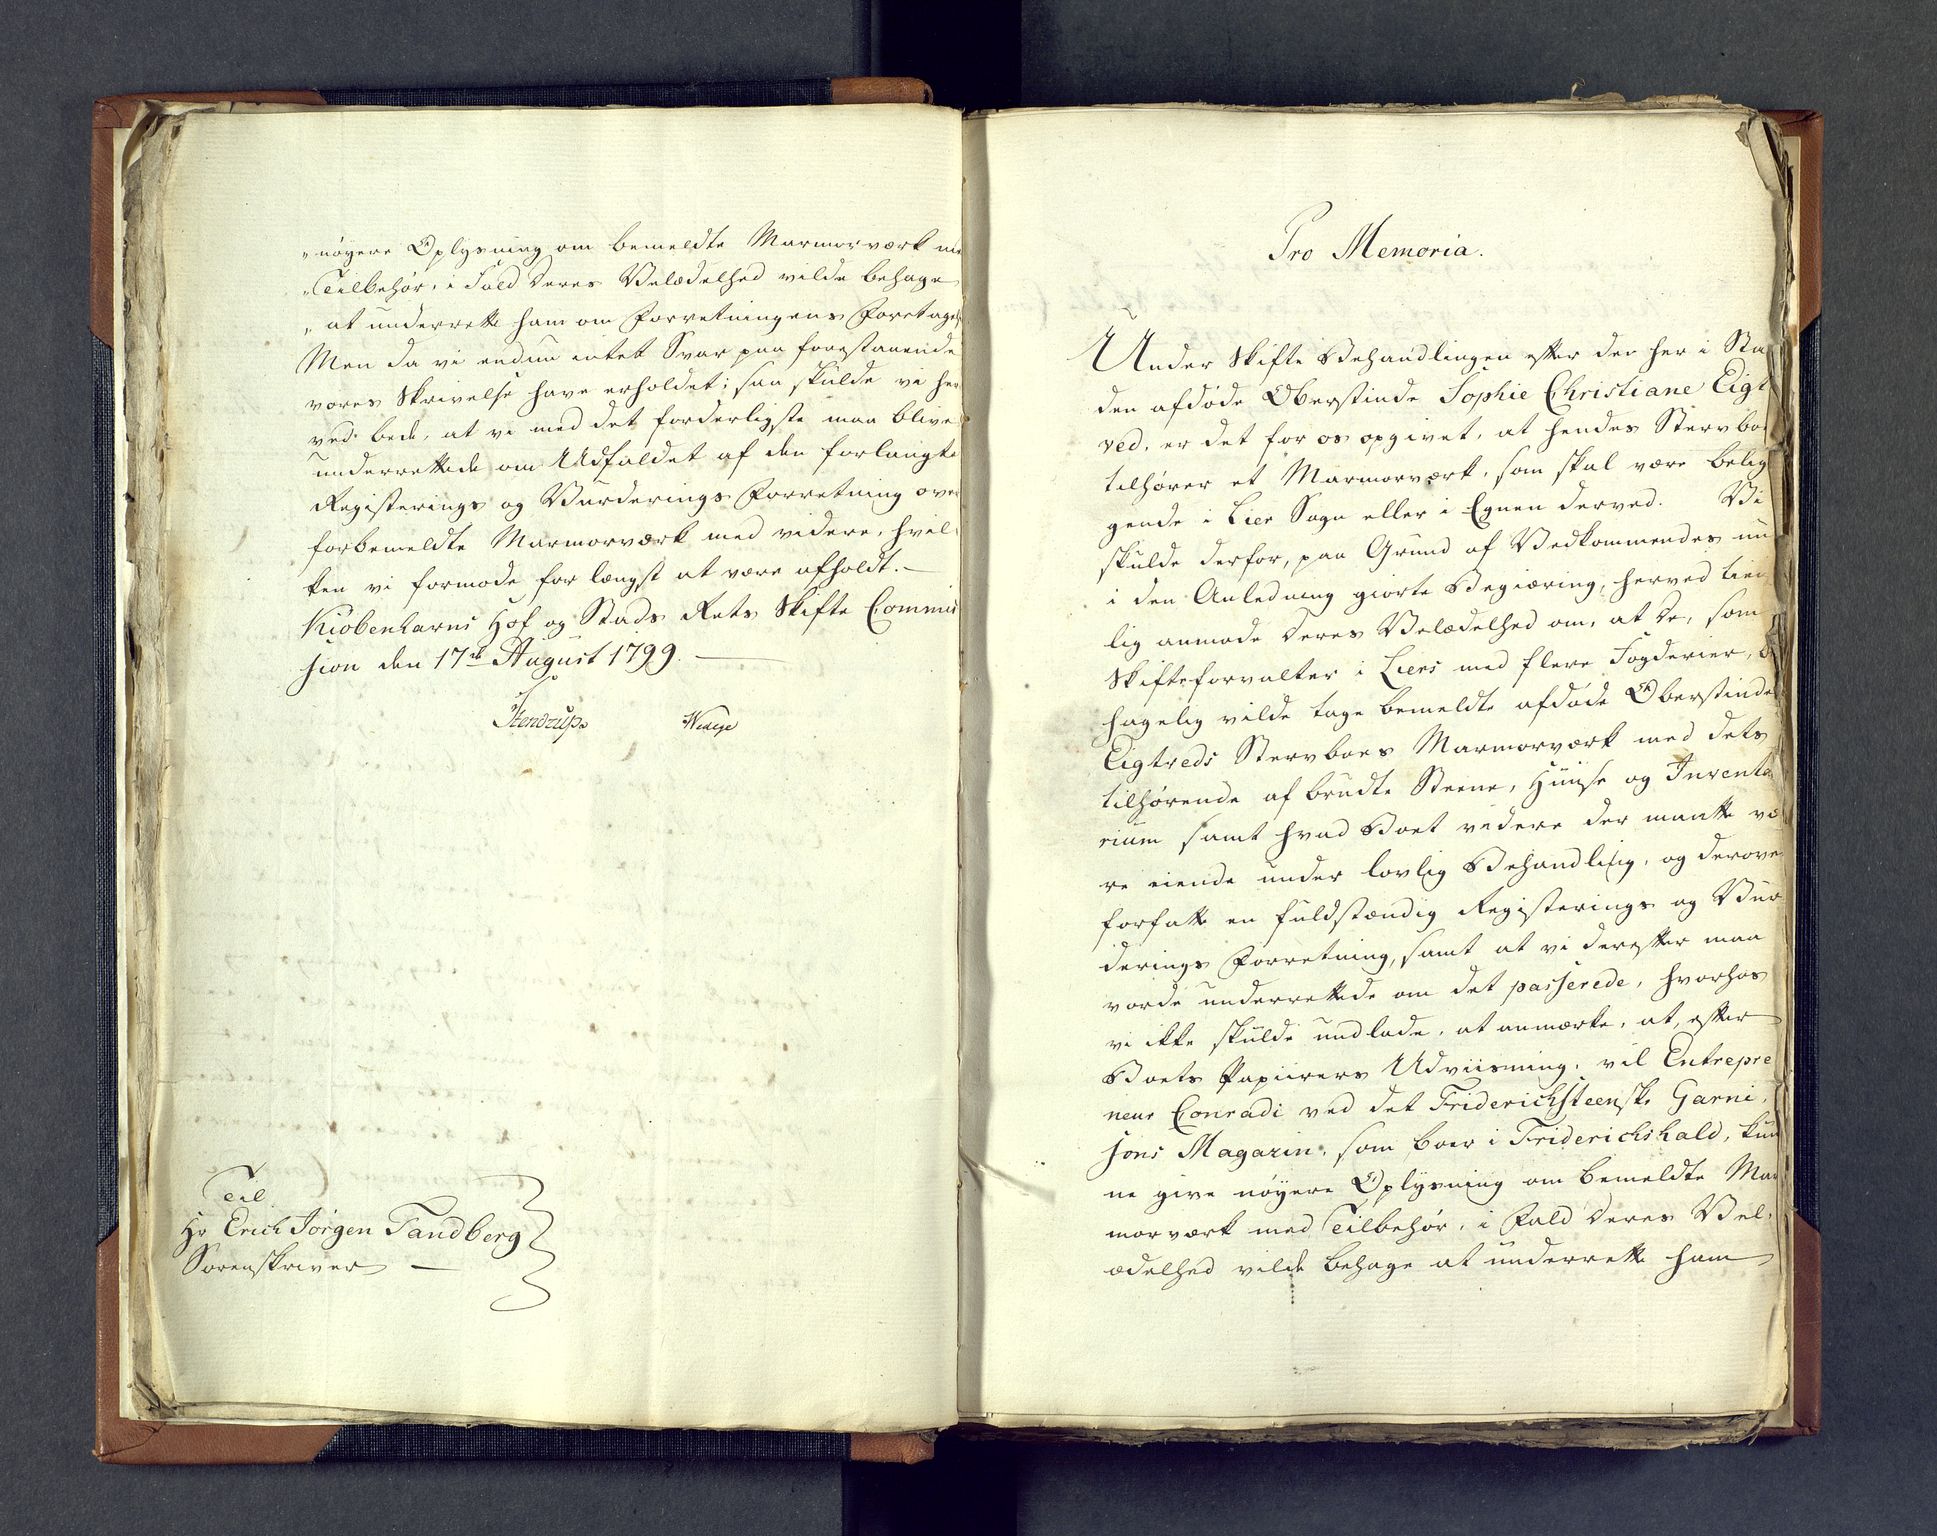 „nøyere Oplysning om bemeldte Marmorværk me
„Tilbehør, i Fald Deres Velædelhed vilde behage
„at underrette ham om Forretningens Foretagels
Men da vi endnu intet Svar paa forestaaende
vores Skrivelse have erholdet; saa skulde vi her
ved bede, at vi med det forderligste maa blive
underrettede om Udfaldet af den forlangte
Registerings og Vurderings Forretning over
forbemeldte Marmorværk med videre, hvil¬
ken vi formode for længst at være afholdt.—
Kiøbenhavns Hof og Stads Rets Skifte Commis
sion den 17de August 1799.
Stendrup.
Til
Hr Erich Jørgen Tandberg
Sorenskriver —
Pro Memoria.
Under Skifte Behandlingen efter den her i Sta
den afdøde Oberstinde Sophie Christiane Eigt
ved, er det for os opgivet, at hendes Stervboe
tilhører et Marmorværk, som skal være belig
gende i Lier Sogn eller i Egnen derved. Vi
skulde derfor, paa Grund af Vedkommendes nu
i den Anledning giorte Begiæring, herved tien
lig anmode Deres Velædelhed om, at De, som
Skifteforvalter i Liers med flere Fogderier, be
hagelig vilde tage bemeldte afdøde Oberstinde
Eigtveds Stervboes Marmorværk med dets
tilhørende af brudte Steene, Huuse og Inventa
rium samt hvad Boet videre der maatte væ
re eiende under lovlig Behandling, og derover
forfatte en fuldstændig Registerings og Vur
derings Forretning, samt at vi derefter maa
vorde underrettede om det passerede, hvorhos
vi ikke skulde undlade, at anmærke, at, efter
Boets Papiirers Udviisning, vil Entrepre
neur Conradi ved det Friderichsteenske Garni¬
sons Magazin, som boer i Friderichshald, kun
ne give nøyere Oplysning om bemeldte Mar
morværk med Tilbehør, i Fald Deres Vel¬
ædelhed vilde behage at underrette ham